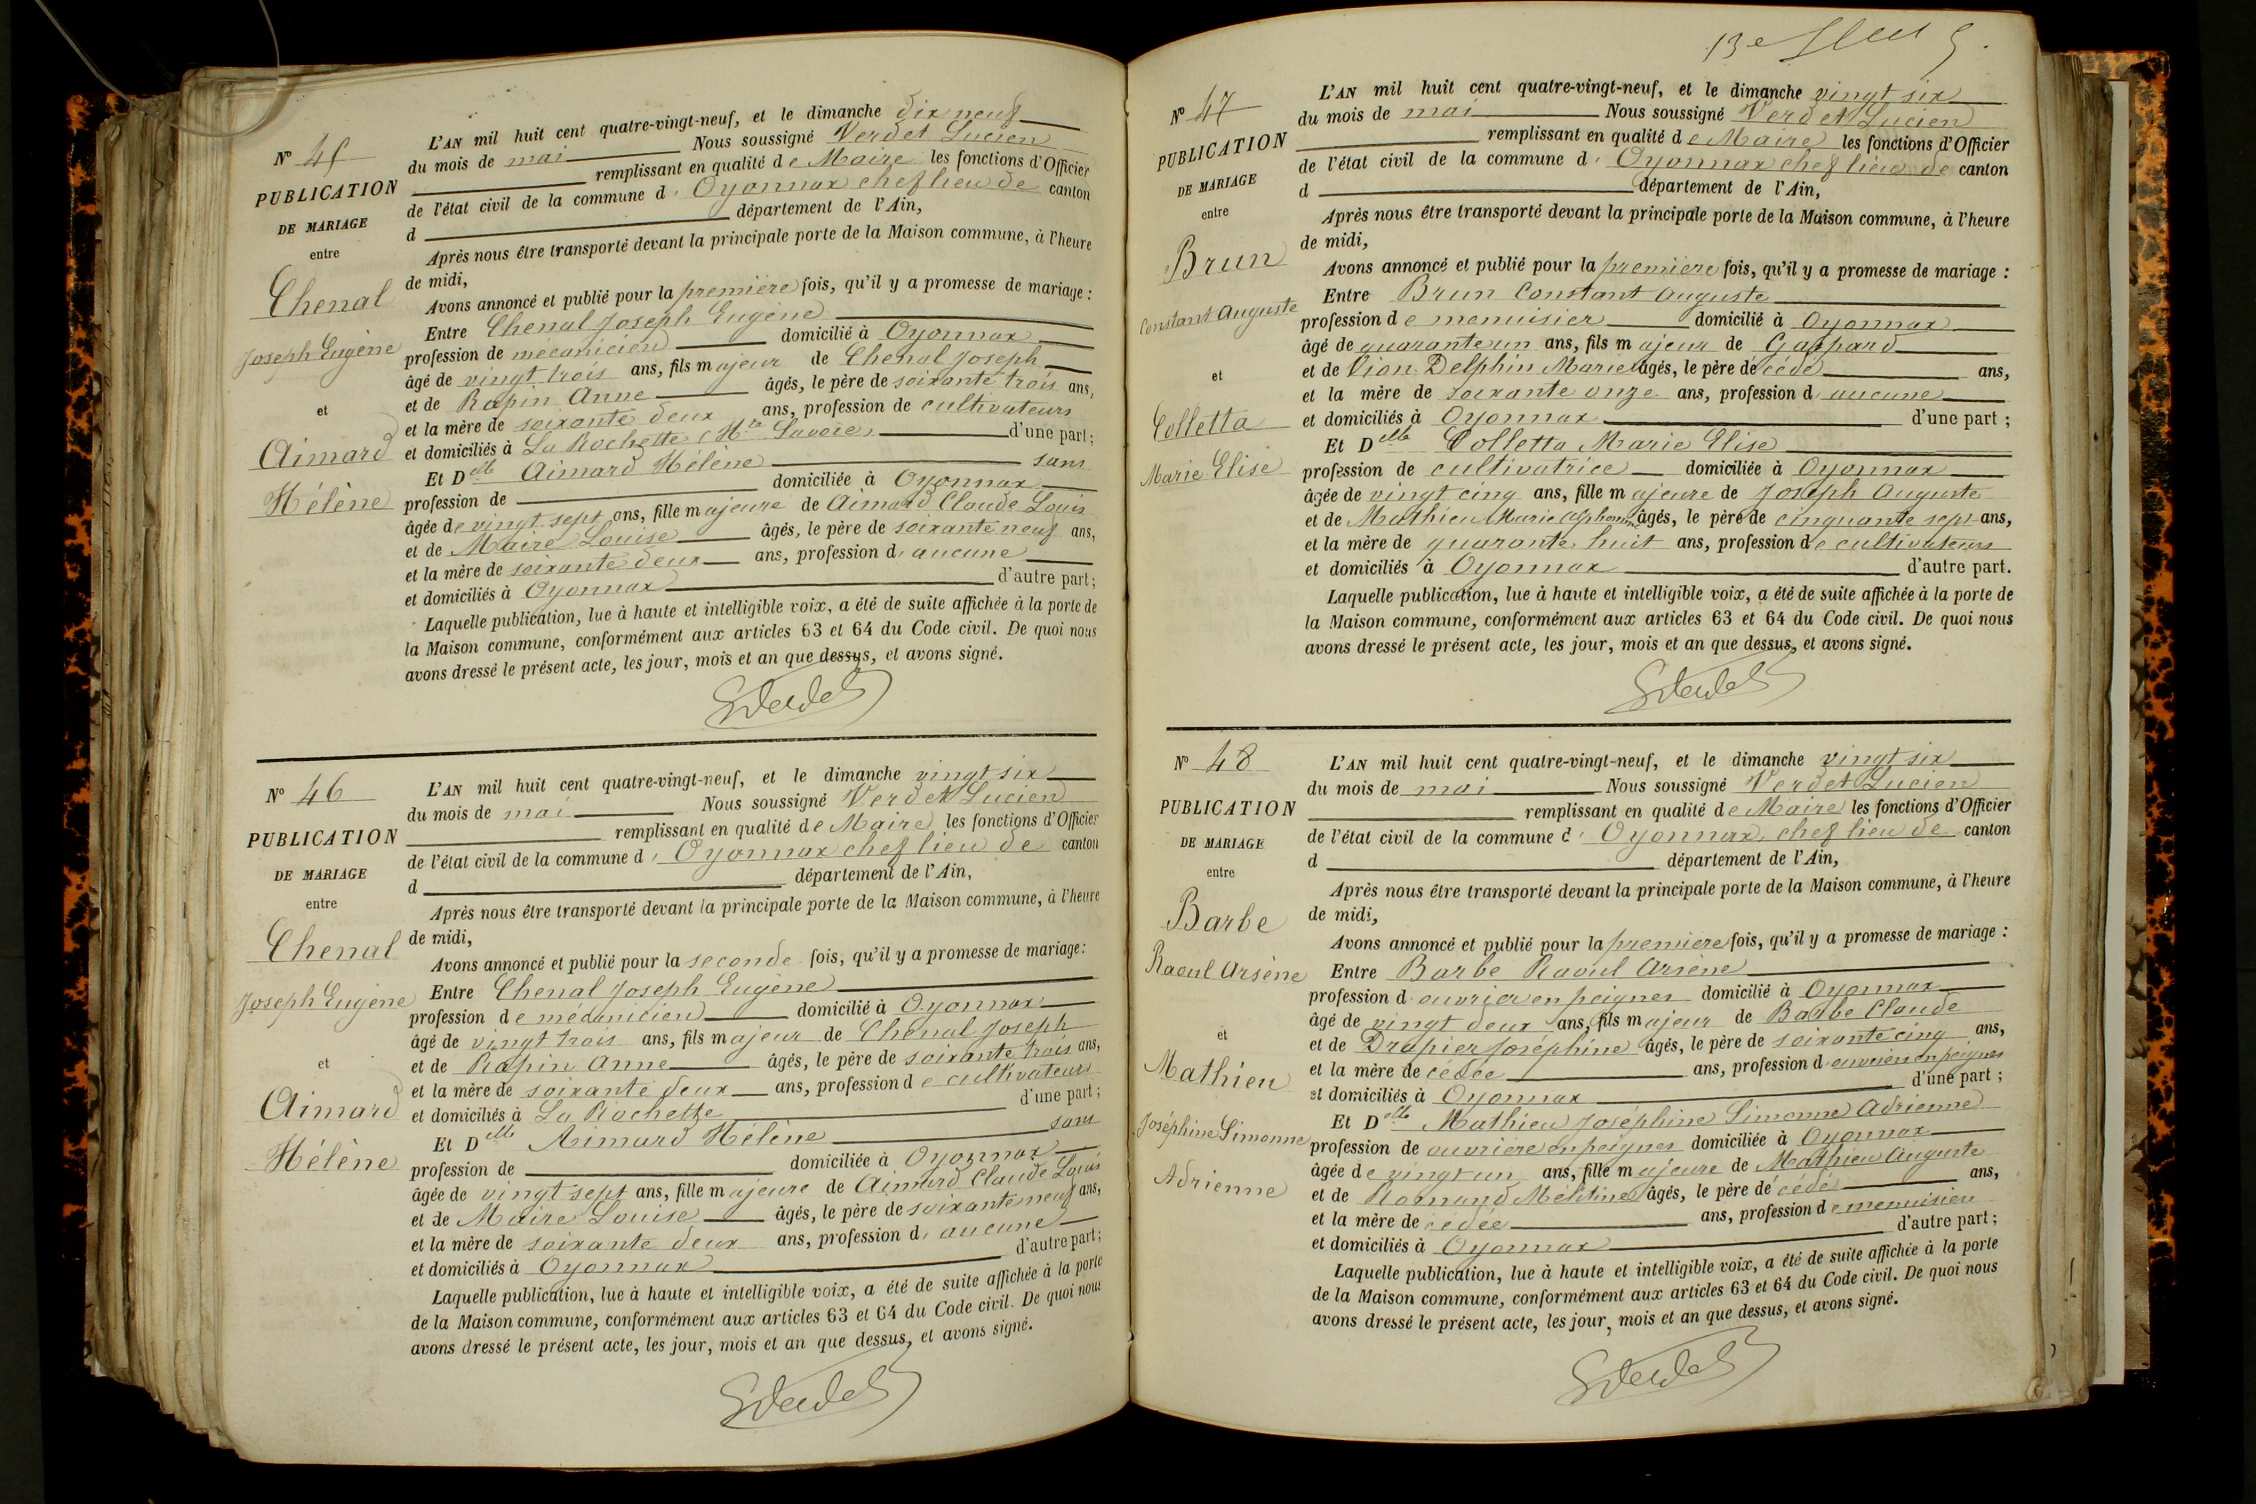 Nº 45
PUBLICATION
DE MARIAGE
entre
Chenal
Joseph Eugène
et
Aimard
Hélène
L'AN mil huit cent quatre-vingt-neuf, et le dimanche dix neuf
du mois de mai Nous soussigné Verdet Lucien
remplissant en qualité de Maire les fonctions d'Officier
de l'état civil de la commune d' Oyonnax chef lieu de canton
d département de l'Ain,
Après nous être transporté devant la principale porte de la Maison commune, à l'heure
de midi,
Avons annoncé et publié pour la première fois, qu'il y a promesse de mariage :
Entre Chenal Joseph Eugène
profession de mécanicien domicilié à Oyonnax
âgé de vingt trois ans, fils majeur de Chenal Joseph
et de Rapin Anne âgés, le père de soixante trois ans,
et la mère de soixante deux ans, profession de cultivateurs
et domiciliés à La Rochette (Hte Savoie) d'une part ;
Et Delle Aimard Hélène sans
profession de domiciliée à Oyonnax
âgée de vingt sept ans, fille majeure de Aimard Claude Louis
et de Maire Louise âgés, le père de soixante neuf ans,
et la mère de soixante deux ans, profession d' aucune
et domiciliés à Oyonnax d'autre part ;
Laquelle publication, lue à haute et intelligible voix, a été de suite affichée à la porte de
la Maison commune, conformément aux articles 63 et 64 du Code civil. De quoi nous
avons dressé le présent acte, les jour, mois et an que dessus, et avons signé.
Nº 46
PUBLICATION
DE MARIAGE
entre
Chenal
Joseph Eugène
et
Aimard
Hélène
L'AN mil huit cent quatre-vingt-neuf, et le dimanche vingt six
du mois de mai Nous soussigné Verdet Lucien
remplissant en qualité de Maire les fonctions d'Officier
de l'état civil de la commune d' Oyonnax chef lieu de canton
d département de l'Ain,
Après nous être transporté devant la principale porte de la Maison commune, à l'heure
de midi,
Avons annoncé et publié pour la seconde fois, qu'il y a promesse de mariage :
Entre Chenal Joseph Eugène
profession de mécanicien domicilié à Oyonnax
âgé de vingt trois ans, fils majeur de Chenal Joseph
et de Rapin Anne âgés, le père de soixante trois ans,
et la mère de soixante deux ans, profession de cultivateurs
et domiciliés à La Rochette d'une part ;
Et Delle Aimard Hélène sans
profession de domiciliée à Oyonnax
âgée de vingt sept ans, fille majeure de Aimard Claude Louis
et de Maire Louise âgés, le père de soixante neuf ans,
et la mère de soixante deux ans, profession d' aucune
et domiciliés à Oyonnax d'autre part ;
Laquelle publication, lue à haute et intelligible voix, a été de suite affichée à la porte
de la Maison commune, conformément aux articles 63 et 64 du Code civil. De quoi nous
avons dressé le présent acte, les jour, mois et an que dessus, et avons signé.
13e
Nº 47
PUBLICATION
DE MARIAGE
entre
Brun
Constant Auguste
et
Colletta
Marie Elise
L'AN mil huit cent quatre-vingt-neuf, et le dimanche vingt six
du mois de mai Nous soussigné Verdet Lucien
remplissant en qualité de Maire les fonctions d'Officier
de l'état civil de la commune d' Oyonnax chef lieu de canton
d département de l'Ain,
Après nous être transporté devant la principale porte de la Maison commune, à l'heure
de midi,
Avons annoncé et publié pour la première fois, qu'il y a promesse de mariage :
Entre Brun Constant Auguste
profession de menuisier domicilié à Oyonnax
âgé de quarante un ans, fils majeur de Gaspard
et de Vion Delphin Marie âgés, le père décédé ans,
et la mère de soixante onze ans, profession d' aucune
et domiciliés à Oyonnax d'une part ;
Et Delle Colletta Marie Elise
profession de cultivatrice domiciliée à Oyonnax
âgée de vingt cinq ans, fille majeure de Joseph Auguste
et de Mathieu Marie Alphonsine âgés, le père de cinquante sept ans,
et la mère de quarante huit ans, profession de cultivateurs
et domiciliés à Oyonnax d'autre part.
Laquelle publication, lue à haute et intelligible voix, a été de suite affichée à la porte de
la Maison commune, conformément aux articles 63 et 64 du Code civil. De quoi nous
avons dressé le présent acte, les jour, mois et an que dessus, et avons signé.
Nº 48
PUBLICATION
DE MARIAGE
entre
Barbe
Raoul Arsène
et
Mathieu
Joséphine Simonne
Adrienne
L'AN mil huit cent quatre-vingt-neuf, et le dimanche vingt six
du mois de mai Nous soussigné Verdet Lucien
remplissant en qualité de Maire les fonctions d'Officier
de l'état civil de la commune d' Oyonnax, chef lieu de canton
d département de l'Ain,
Après nous être transporté devant la principale porte de la Maison commune, à l'heure
de midi,
Avons annoncé et publié pour la première fois, qu'il y a promesse de mariage :
Entre Barbe Raoul Arsène
profession d' ouvrier en peignes domicilié à Oyonnax
âgé de vingt deux ans, fils majeur de Barbe Claude
et de Drapier Joséphine âgés, le père de soixante cinq ans,
et la mère décédée ans, profession d' ouvrier en peignes
et domiciliés à Oyonnax d'une part ;
Et Delle Mathieu Joséphine Simonne Adrienne
profession de ouvrière en peignes domiciliée à Oyonnax
âgée de vingt un ans, fille majeure de Mathieu Auguste
et de Normand Mélitine âgés, le père décédé ans,
et la mère décédée ans, profession de menuisier
et domiciliés à Oyonnax d'autre part ;
Laquelle publication, lue à haute et intelligible voix, a été de suite affichée à la porte
de la Maison commune, conformément aux articles 63 et 64 du Code civil. De quoi nous
avons dressé le présent acte, les jour, mois et an que dessus, et avons signé.